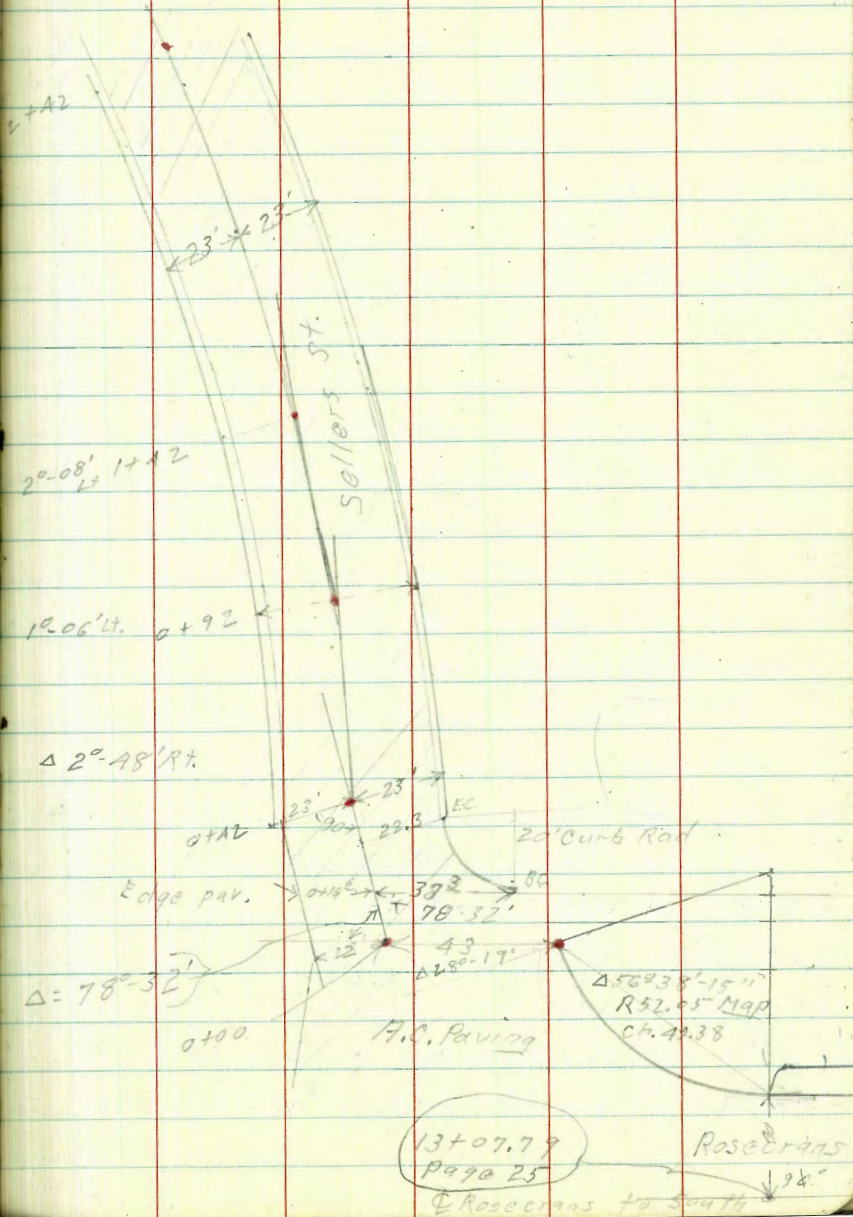 2+42
23' 23'
Sellers St.
2°-08' Lt 1+42
1°-06' Lt. 0+92
Δ 2°-48' Rt.
23' 23' E.C.
0+42 90° 22.3
20' Curb Rad
Edge pav. 0+16⁵ 37³ BC
78°-32'
22 43
Δ28°-19'
Δ= 78°-32'
Δ56°38'-15"
R52.05 Map
Ch. 49.38
0+00
A.C. Paving
13+07.79
Page 25
Rosecrans
℄ Rosecrans to South